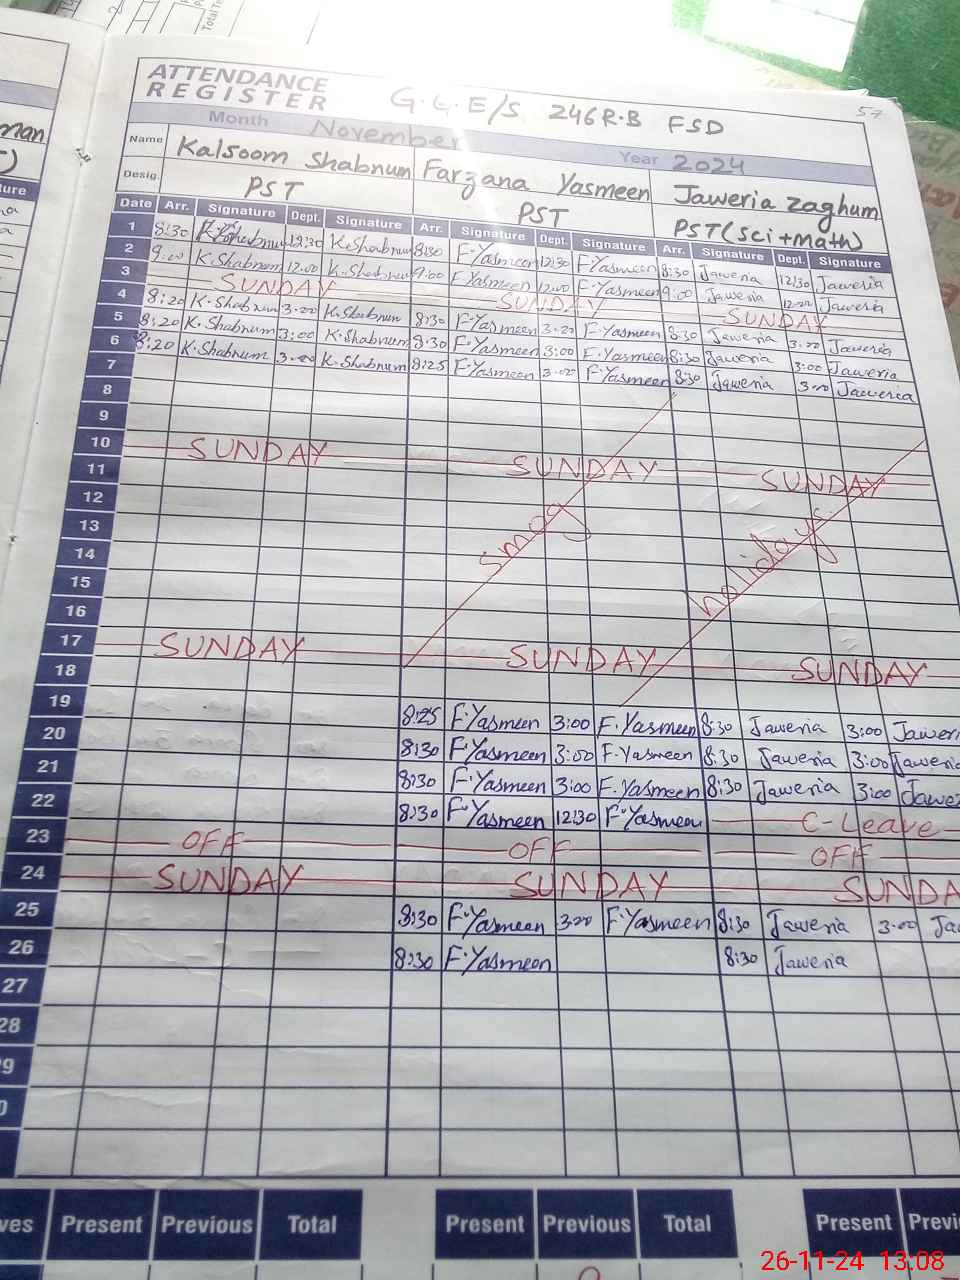 57
ATTENDANCE
REGISTER G.G.E/S 246R.B FSD
Month November Year 2024
Name Kalsoom Shabnum Farzana Yasmeen Jaweria Zaghum
Desig. PST PST PST(sci+math)
Date Arr. Signature Dept. Signature Arr. Signature Dept. Signature Arr. Signature Dept. Signature
1 8:30 K.Shabnum 12:30 K.Shabnum 8:30 F.Yasmeen 12:30 F.Yasmeen 8:30 Jaweria 12:30 Jaweria
2 9:00 K.Shabnum 12:00 K.Shabnum 9:00 F.Yasmeen 12:00 F.Yasmeen 9:00 Jaweria 12:00 Jaweria
3 SUNDAY SUNDAY SUNDAY
4 8:20 K.Shabnum 3:00 K.Shabnum 8:30 F.Yasmeen 3:00 F.Yasmeen 8:30 Jaweria 3:00 Jaweria
5 8:20 K.Shabnum 3:00 K.Shabnum 8:30 F.Yasmeen 3:00 F.Yasmeen 8:30 Jaweria 3:00 Jaweria
6 8:20 K.Shabnum 3:00 K.Shabnum 8:25 F.Yasmeen 3:00 F.Yasmeen 8:30 Jaweria 3:00 Jaweria
7
8
9
10 SUNDAY SUNDAY SUNDAY
11
12
13 smog holidays
14
15
16
17 SUNDAY SUNDAY SUNDAY
18
19 8:25 F.Yasmeen 3:00 F.Yasmeen 8:30 Jaweria 3:00 Jaweri
20 8:30 F.Yasmeen 3:00 F.Yasmeen 8:30 Jaweria 3:00 Jaweria
21 8:30 F.Yasmeen 3:00 F.Yasmeen 8:30 Jaweria 3:00 Jawe
22 8:30 F.Yasmeen 12:30 F.Yasmeen C-Leave
23 OFF OFF OFF
24 SUNDAY SUNDAY SUNDA
25 8:30 F.Yasmeen 3:00 F.Yasmeen 8:30 Jaweria 3:00 Ja
26 8:30 F.Yasmeen 8:30 Jaweria
27
28
9
0
ves Present Previous Total Present Previous Total Present Previ
26-11-24 13:08